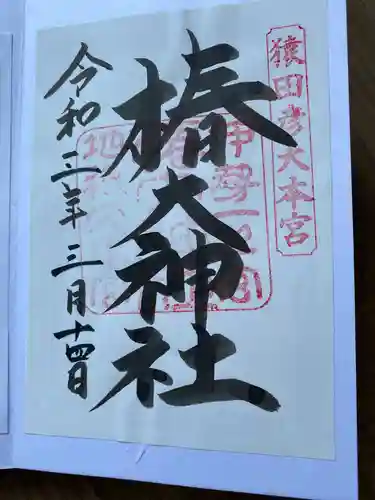 猿田彦大本宮
椿大神社
令和三年三月十四日